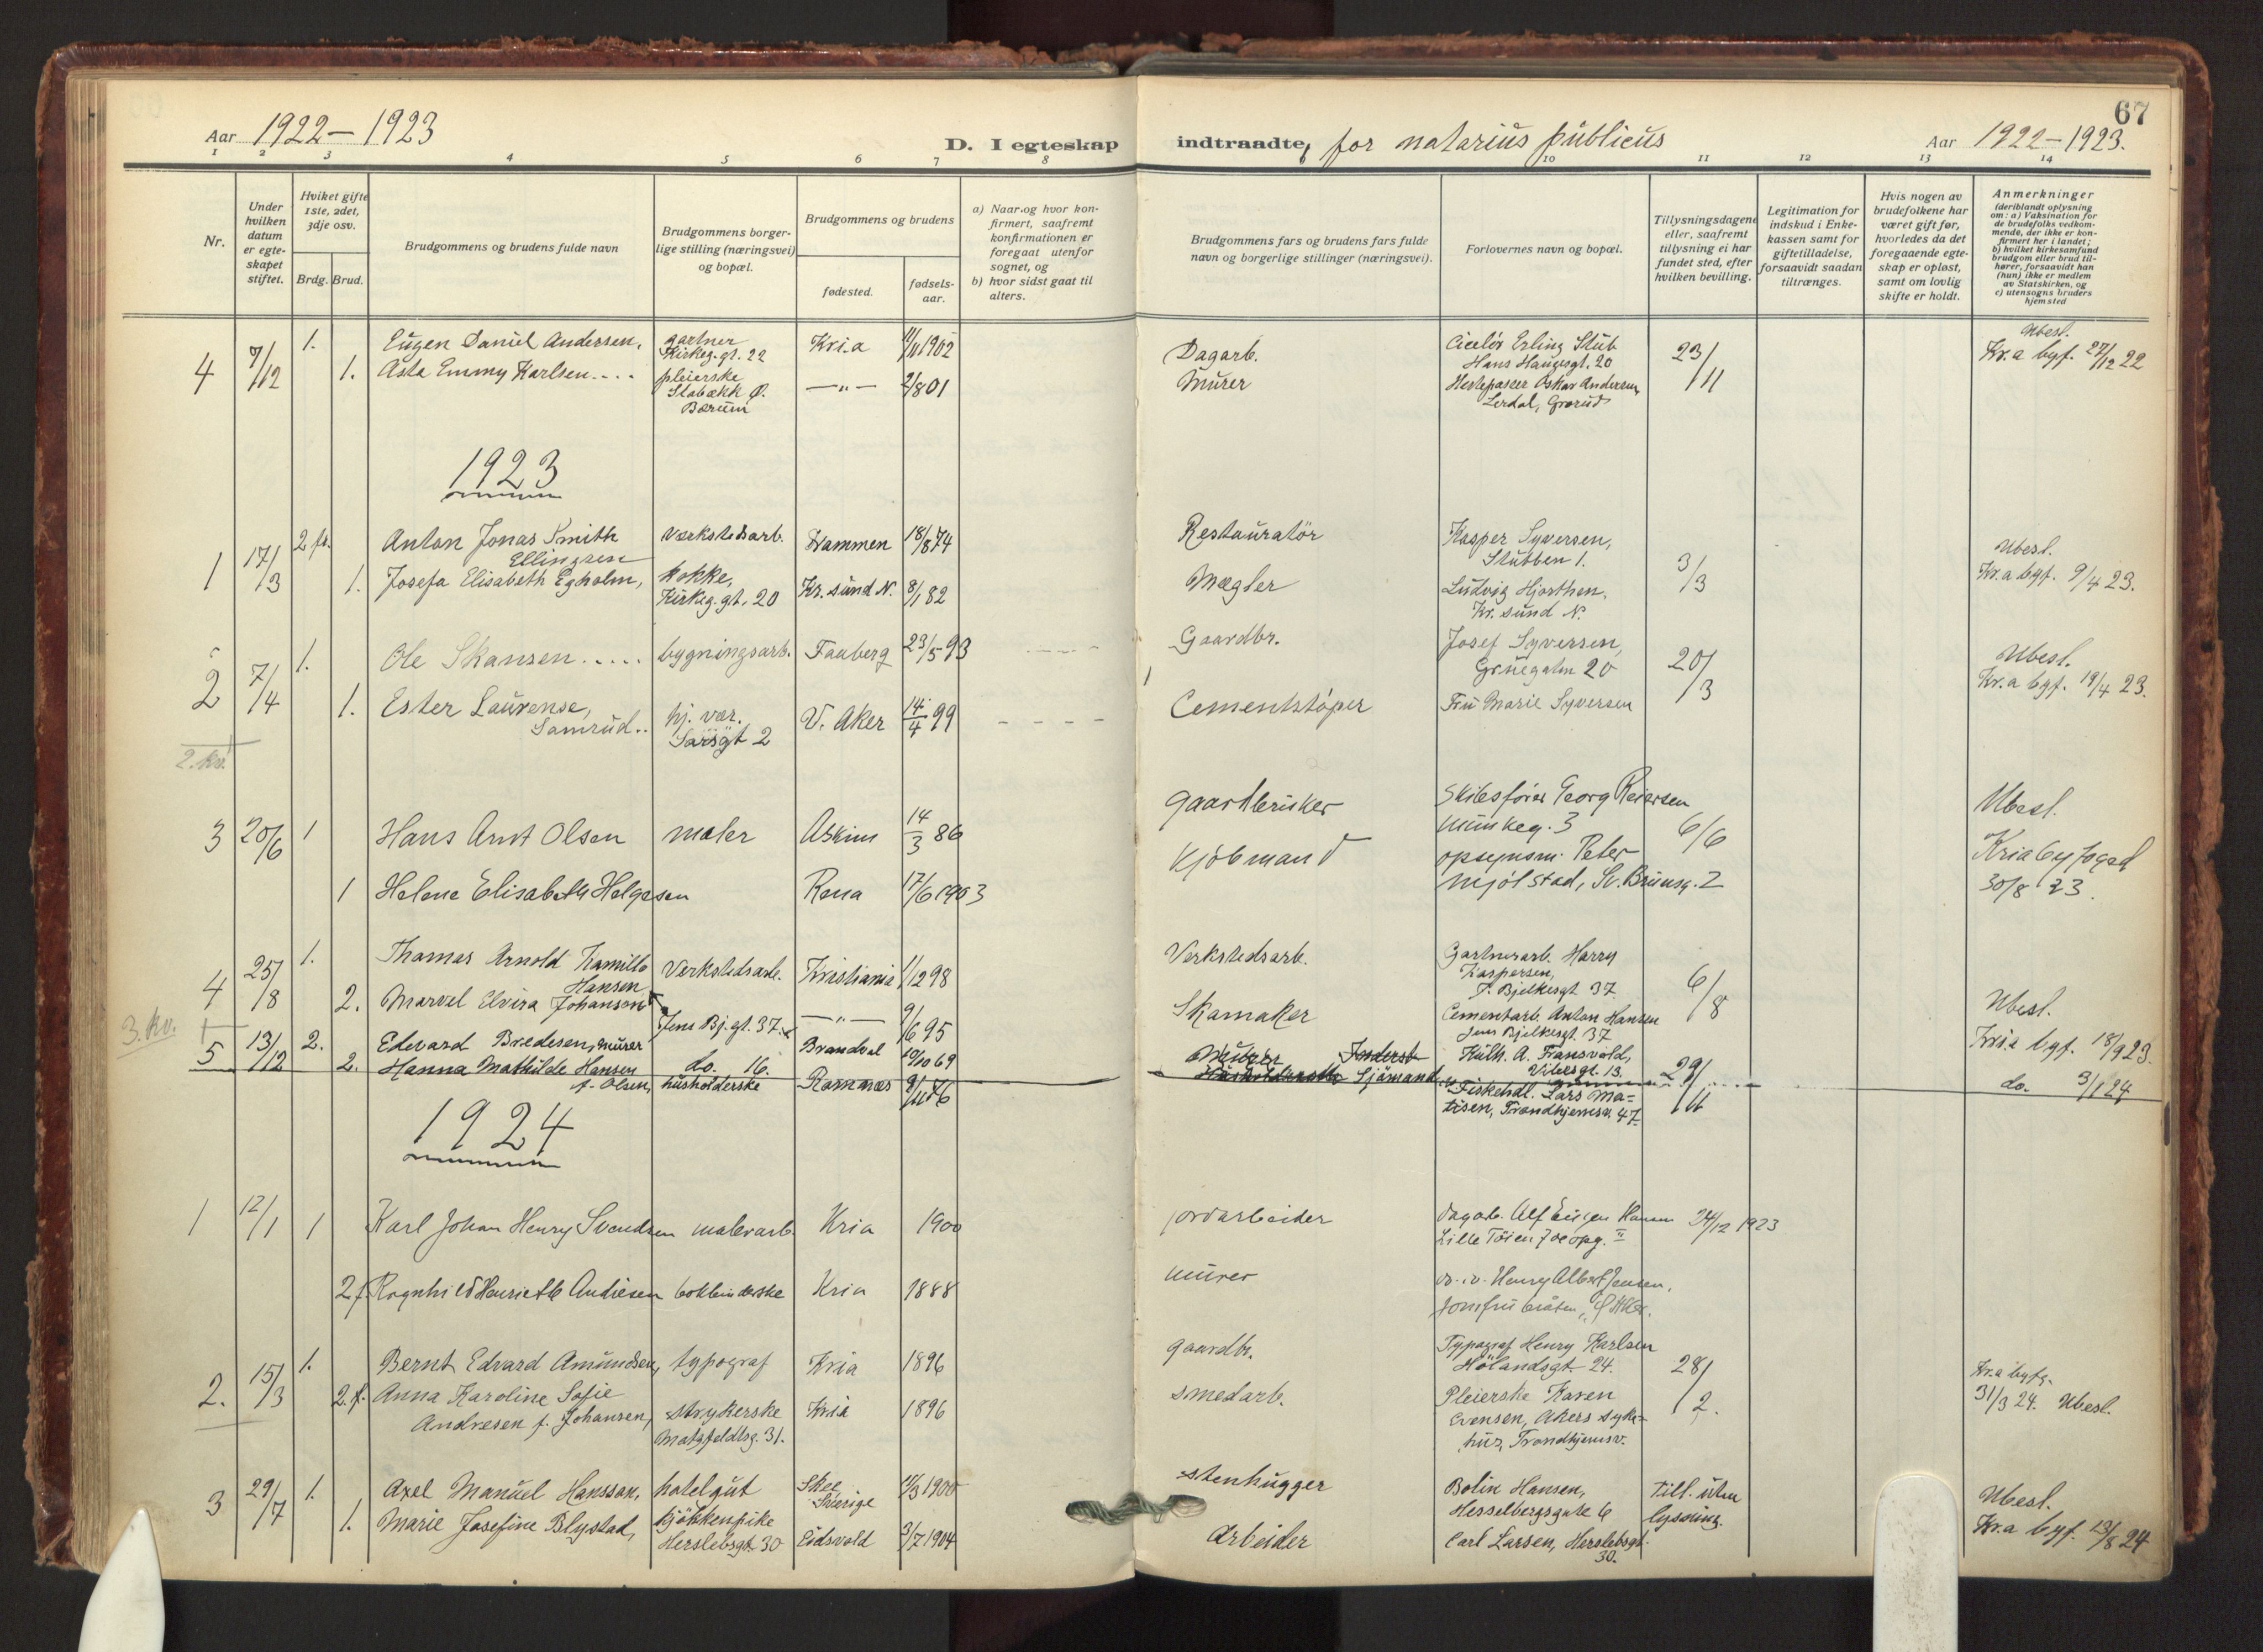 67
Aar 1922–1923
D. I egteskap indtraadte, for notarius publicus
Aar 1922–1923.
1 2 3 4 5 6 7 8 10 11 12 13 14
Nr.
Under hvilken datum er egteskapet stiftet.
Hvilket gifte 1ste, 2det, 3dje osv.
Brdg. Brud.
Brudgommens og brudens fulde navn
Brudgommens borgerlige stilling (næringsvei) og bopæl.
Brudgommens og brudens
fødested.
fødselsaar.
a) Naar og hvor konfirmert, saafremt konfirmationen er foregaat utenfor sognet, og
b) hvor sidst gaat til alters.
Brudgommens fars og brudens fars fulde navn og borgerlige stillinger (næringsvei).
Forlovernes navn og bopæl.
Tillysningsdagene eller, saafremt tillysning ei har fundet sted, efter hvilken bevilling.
Legitimation for indskud i Enkekassen samt for giftetilladelse, forsaavidt saadan tiltrænges.
Hvis nogen av brudefolkene har været gift før, hvorledes da det foregaaende egteskap er opløst, samt om lovlig skifte er holdt.
Anmerkninger
(deriblandt oplysning om: a) Vaksination for de brudefolks vedkommende, der ikke er konfirmert her i landet; b) hvilket kirkesamfund brudgom eller brud tilhører, forsaavidt han (hun) ikke er medlem av Statskirken, og c) utensogns bruders hjemsted
4 7/12 1. Eugen Daniel Andersen, gartner Kirkeg.gt. 22 Kr.a 11/11 1902 Dagarb. Erling Stub Hans Haugesgt. 20 23/11 Ubesl. Kr.a byf. 27/12 22
1. Asta Emmy Karlsen.... pleierske Stabækk Ø. Bærum —"— 2/8 01 Murer Oskar Andersen, Lerdal, Grorud
1923
1 17/3 2 fr. Anton Jonas Smith Ellingsen Værkstedsarb. Drammen 18/8 74 Restauratör Kasper Syversen, Stubben 1. 3/3 Ubesl. Kr.a byf. 9/4 23.
1. Josefa Elisabeth Egholm, kokke, Kirkeg.gt. 20 Kr.sund N. 8/1 82 Mægler Ludvig Hjorthen, Kr.sund N.
2 7/4 1. Ole Skansen..... bygningsarb. Faaberg 23/5 93 Gaardbr. Josef Syversen, Gruegaten 20 20/3 Ubesl. Kr.a byf. 19/4 23.
1. Ester Laurense, Samrud.. hj. vær. Sarsgt 2 V. Aker 14/4 99 Cementstøper Fru Marie Syversen
2. kv.
3 20/6 1 Hans Arnt Olsen maler Askim 14/3 86 gaardbruker Skibsfører Georg Reiersen Munkeg. 3 6/6 Ubesl. Kria byfoged 30/8 23.
1 Helene Elisabeth Helgesen Rena 17/6 1903 Kjöbmand opsynsm. Peter Mjølstad, Sv. Brunsg. 2
4 25/8 1. Thomas Arnold Kamillo Hansen Verkstedsarb. Kristiania 1/12 98 Verkstedsarb. Gartnerarb. Harry Kaspersen, J. Bjelkesgt 37 6/8 Ubesl. Kria byf. 18/9 23.
2. Marvel Elvira Johanson Jens Bj.gt. 37. —"— 9/6 95 Skomaker Cementarb. Anton Hansen Jens Bjelkesgt. 37
3. kv.
5 13/12 2. Edvard Bredesen, murer do. 16. Brandval 10/10 69 Kulh. A. Fransvold, Vibesgt. 13. 29/11 do. 3/1 24
2. Hanna Mathilde Hansen f. Olsen, husholderske Ramnæs 9/11 76 Sjömand Fiskehdl. Lars Matisen, Trondhjemsv. 47
1924
1 12/1 1 Karl Johan Henry Svendsen malerarb. Kria 1900 jordarbeider dagarb. Alf Eugen Hansen Lille Töien 7de opg. II 24/12 1923
2 f. Ragnhild Henriette Andresen bokbinderske Kria 1888 murer Henry Albert Jensen, Jomfrubråten, Ø Aker.
2. 15/3 1. Bernt Edvard Amundsen, typograf Kria 1896 gaardbr. Typograf Henry Karlsen Hölandsgt. 24. 28/2. Kr.a byf. 31/3 24. Ubesl.
2. f. Anna Karoline Sofie Andresen f. Johansen, strykerske Motzfeldtsg. 31. Kria 1896 smedarb. Pleierske Karen Evensen, Akers sykehus, Trondhjemsv.
3 29/7 1. Axel Manuel Hansson, hotelgut Skee Sverige 11/3 1900 stenhugger Bolin Hansen, Hesselbergsgate 6 Till. uten lysning. Ubesl. Kr.a byf. 13/8 24
1. Marie Josefine Blystad, kjökkenpike Herslebsgt. 30 Eidsvold 3/7 1904 Arbeider Carl Larsen, Herslebsgt. 30.